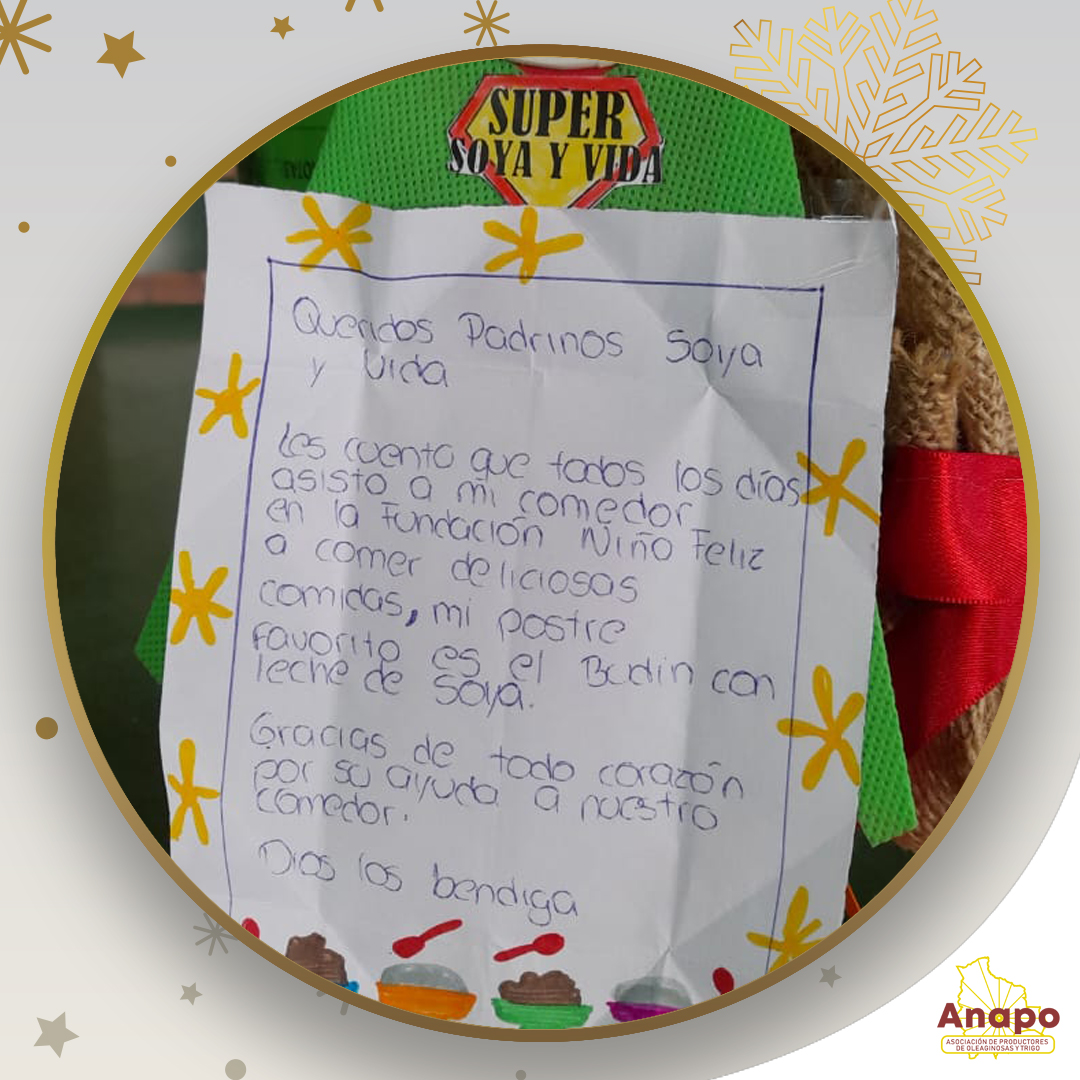 SUPER
SOYA Y VIDA
Queridos Padrinos Soya
y Vida
Les cuento que todos los días
asisto a mi comedor
en la Fundación Niño Feliz
a comer deliciosas
comidas, mi postre
favorito es el Budin con
leche de Soya.
Gracias de todo corazón
por su ayuda a nuestro
comedor.
Dios los bendiga
Anapo
ASOCIACIÓN DE PRODUCTORES
DE OLEAGINOSAS Y TRIGO